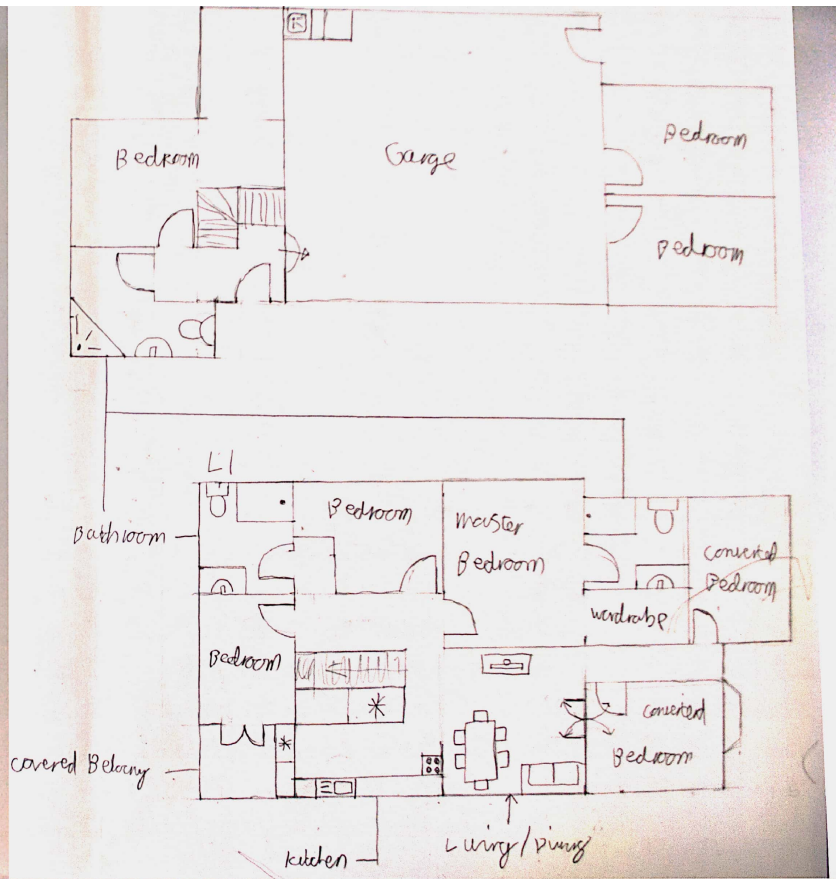 Bedroom
Garge
Bedroom
Bedroom
L1
Bathroom
Bedroom
master
Bedroom
converted
Bedroom
wardrabe
Bedroom
converted
Bedroom
covered Belacny
Kitchen
Living/Dining